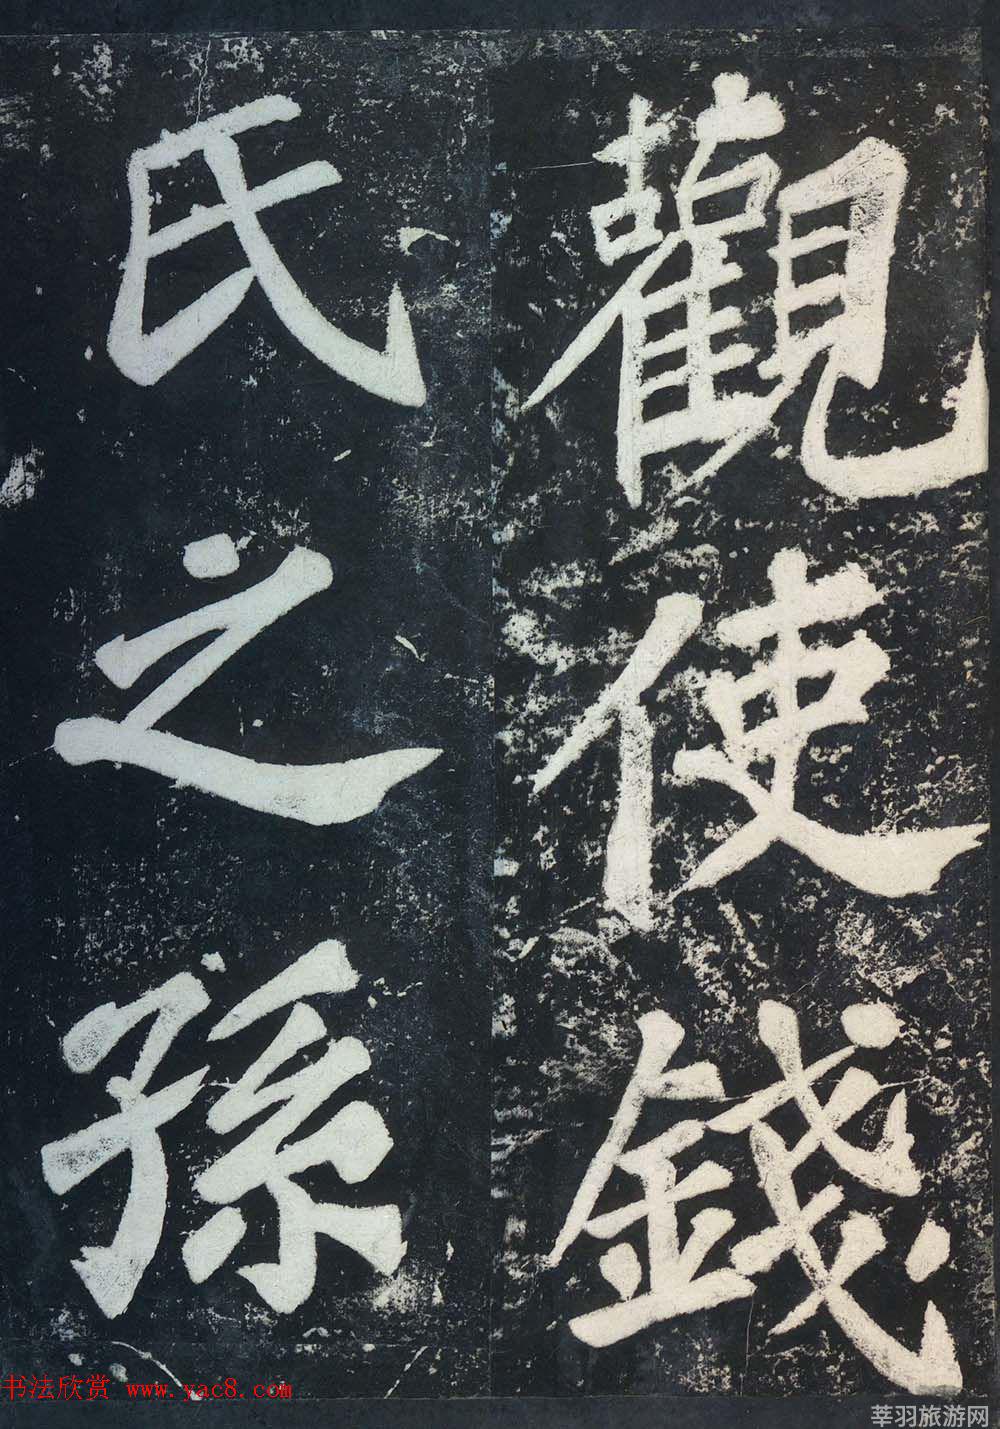 觀使錢
氏之孫
书法欣赏 www.yac8.com
莘羽旅游网